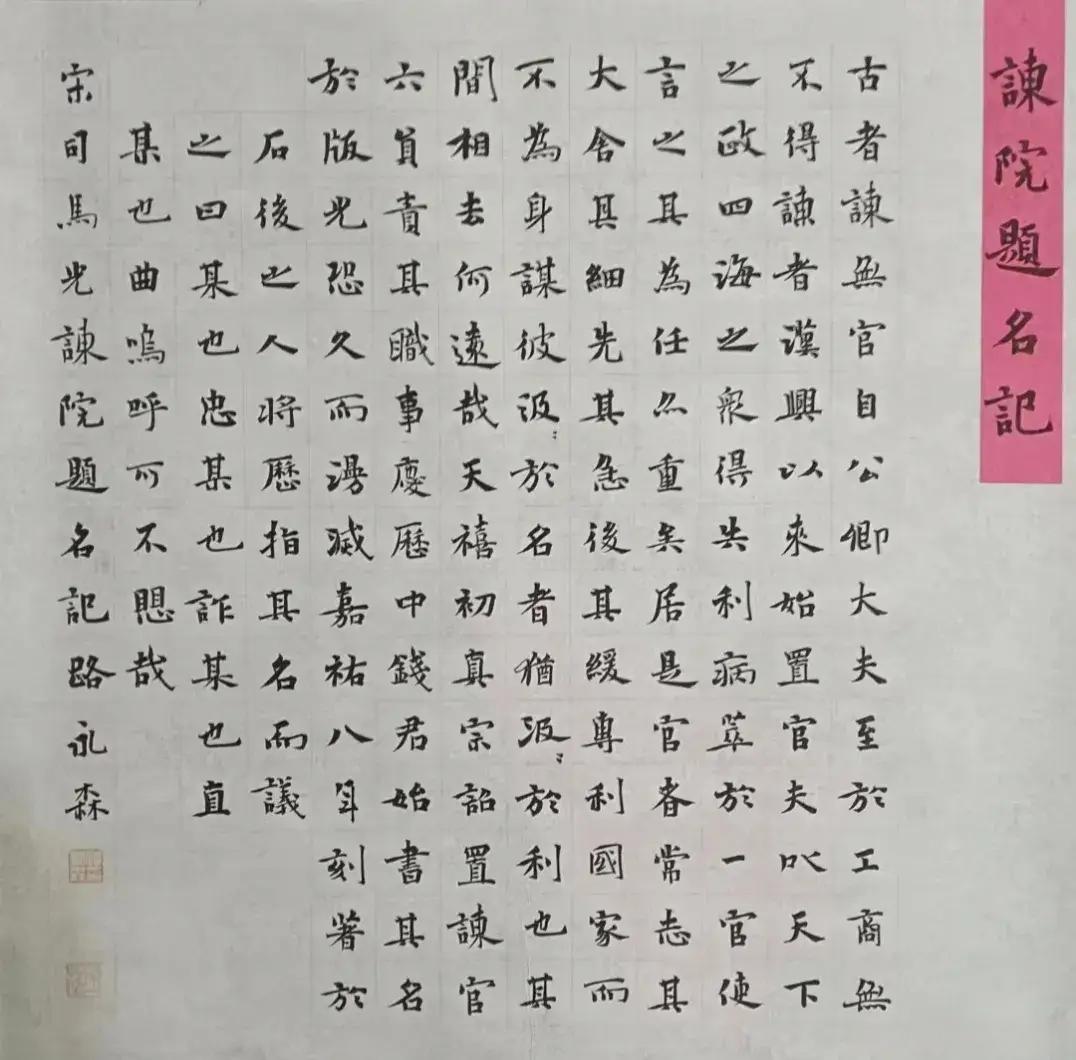 諫院題名記
古者諫無官自公卿大夫至於工商無
不得諫者漢興以來始置官夫以天下
之政四海之衆得失利病萃於一官使
言之其為任亦重矣居是官者常志其
大舍其細先其急後其緩專利國家而
不為身謀彼汲〻於名者猶汲〻於利也其
間相去何遠哉天禧初真宗詔置諫官
六員責其職事慶歷中錢君始書其名
於版光恐久而漫滅嘉祐八年刻著於
石後之人將歷指其名而議
之曰某也忠某也詐某也直
某也曲嗚呼可不愳哉
宋司馬光諫院題名記路永森